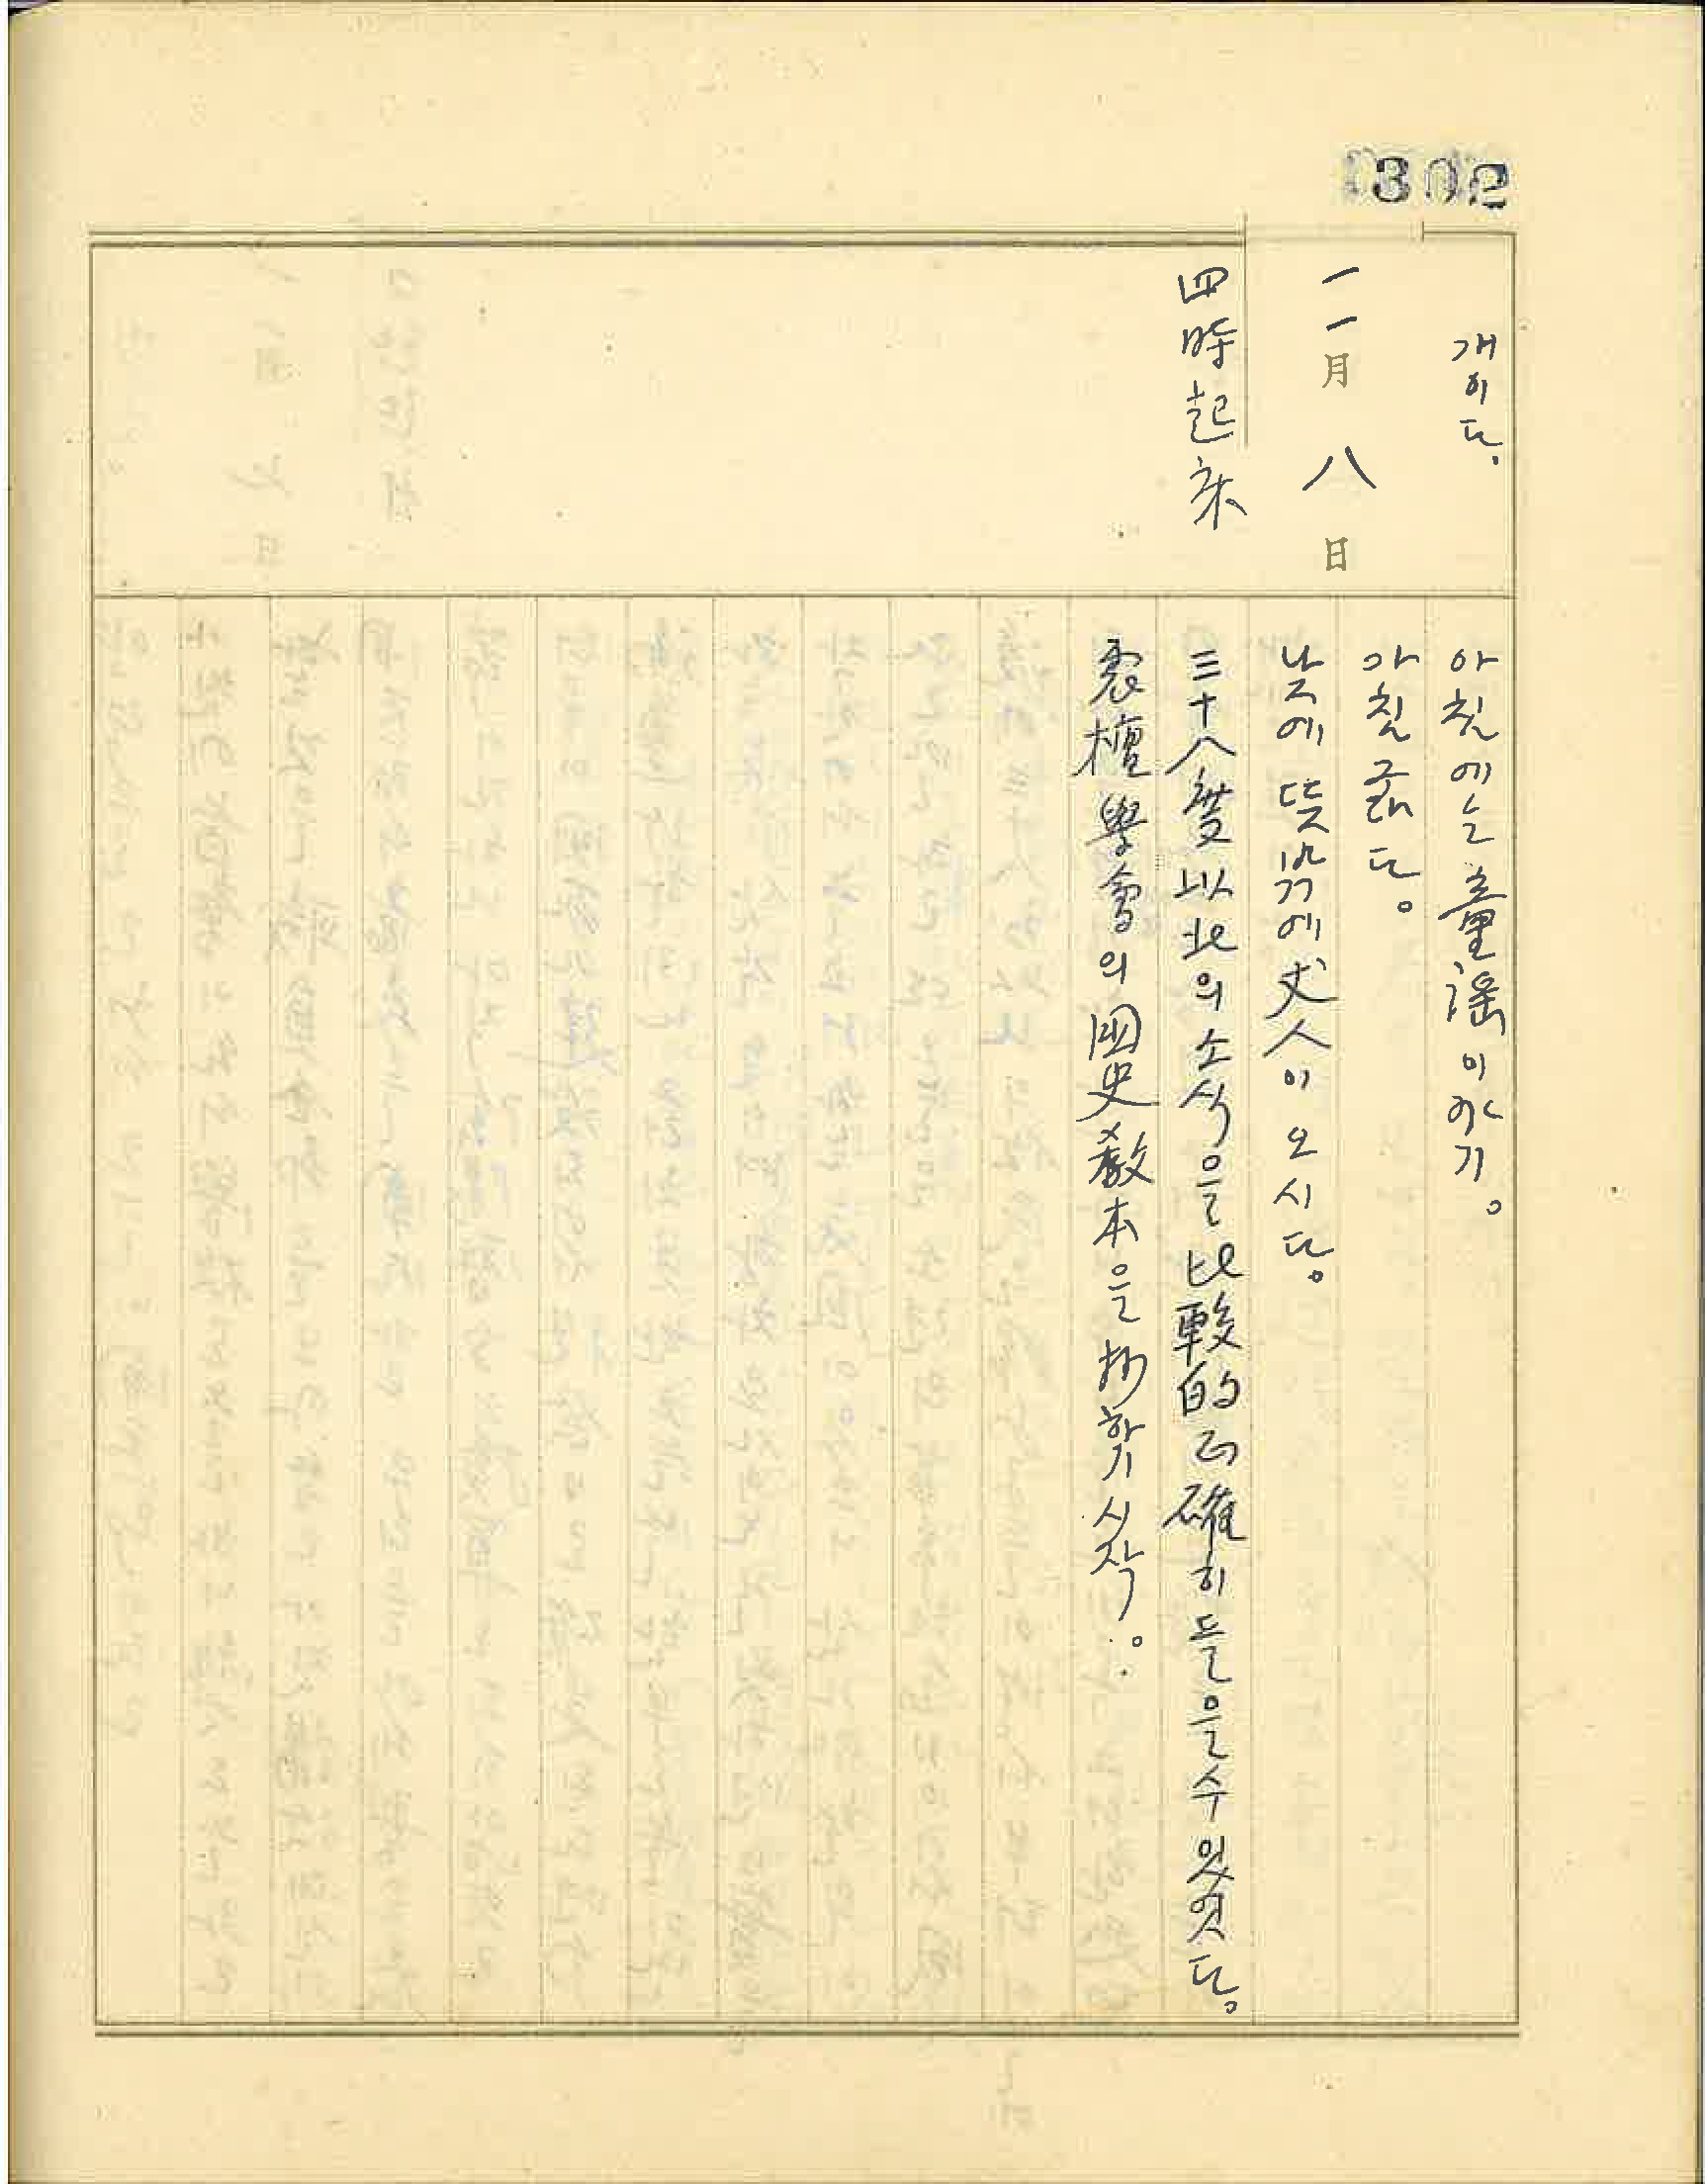 302
개이다.
一一月 八日
四時起床
아침에는 童謠 이야기。
아침 굶다。
낮에 뜻밖에 丈人이 오시다。
三十八度以北의 소식을 比較的 正確히 들을 수 있엇다。
震檀學會의 國史敎本을 抄하기 시작。